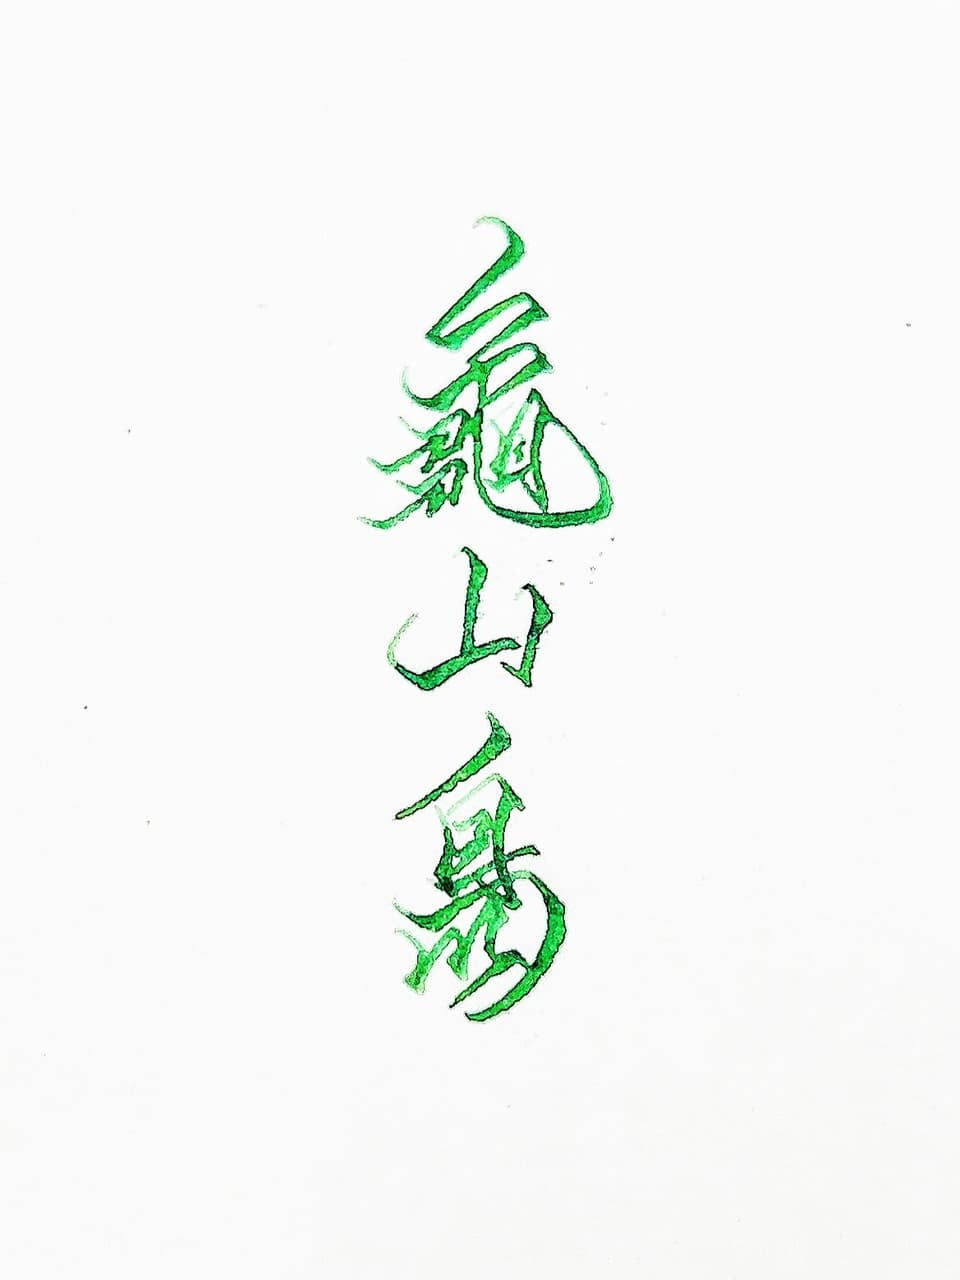 龜山島